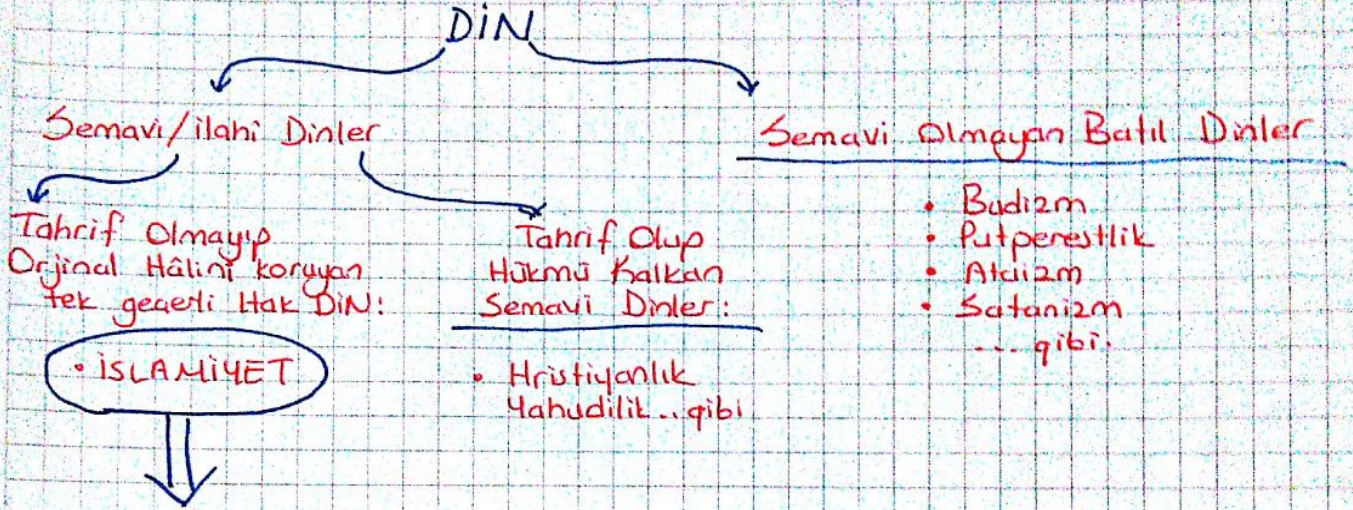 DİN
Semavi/ilahi Dinler
Tahrif Olmayıp
Orjinal Hâlini koruyan
tek geçerli Hak DİN:
• İSLAMİYET
Tahrif Olup
Hükmü Kalkan
Semavi Dinler:
• Hristiyanlık
Yahudilik.. gibi
Semavi Olmayan Batıl Dinler
• Budizm
• Putperestlik
• Ateizm
• Satanizm
... gibi.